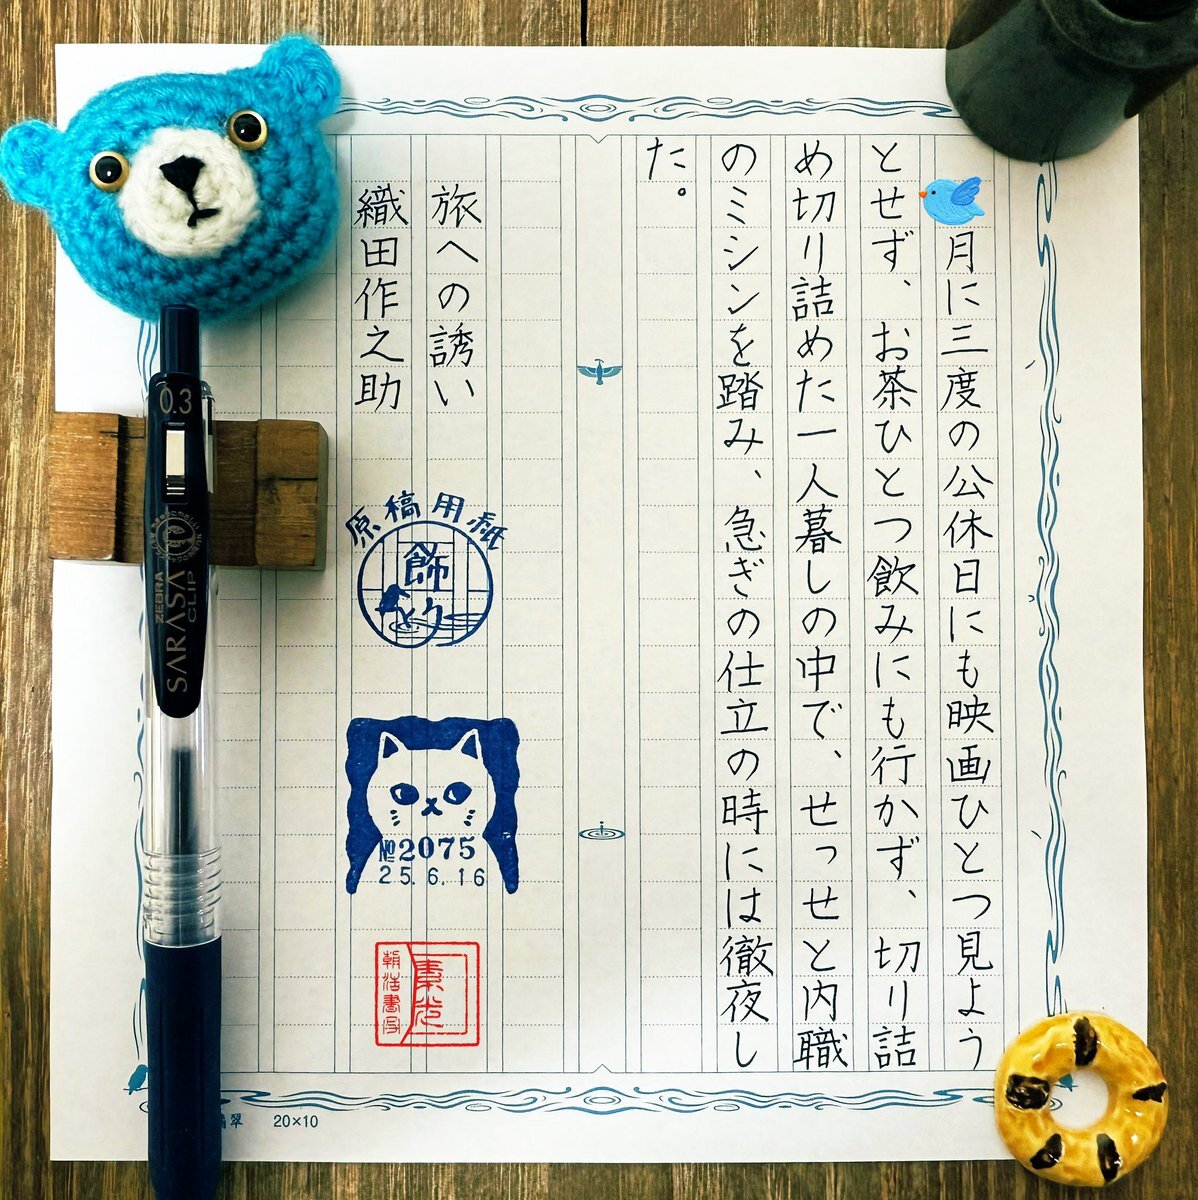 月に三度の公休日にも映画ひとつ見よう
とせず、お茶ひとつ飲みにも行かず、切り詰
め切り詰めた一人暮しの中で、せっせと内職
のミシンを踏み、急ぎの仕立の時には徹夜し
た。
旅への誘い
織田作之助
原稿用紙
飾
№2075
25.6.16
朝活書写
素光
0.3
ZEBRA
SARASA
CLIP
翠 20×10